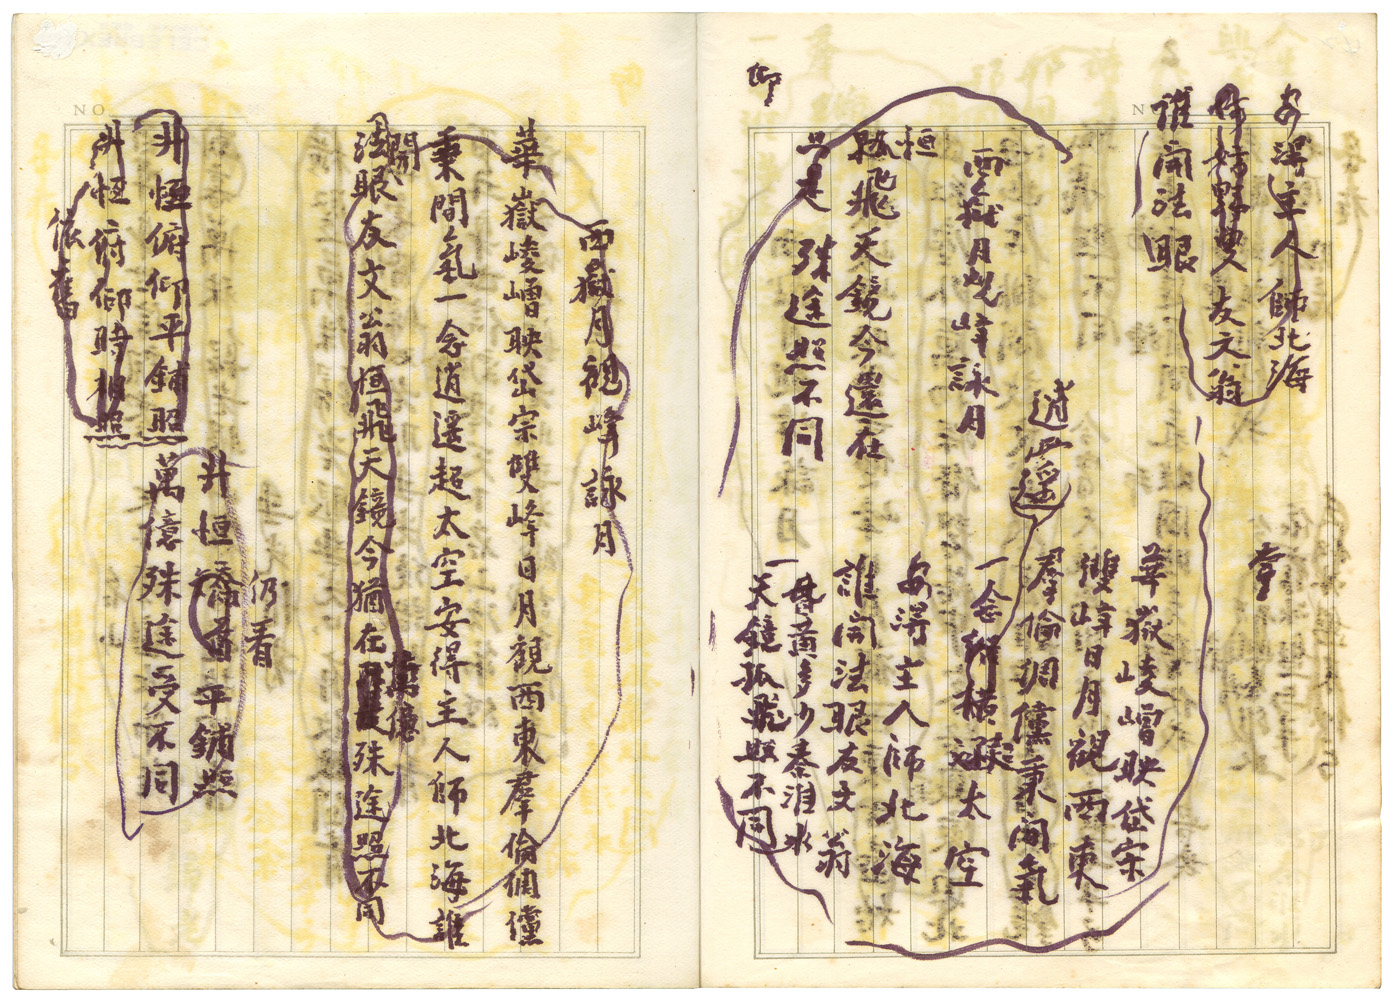 安得主人師北海
姊姊野雙友文翁
誰開法眼
堂
西嶽月觀峰詠月
逍遥
恒
孤飛天鏡今還在
只是 殊途照不同
仰
華嶽崚嶒映岱宗
雙峰日月觀西東
羣倫倜儻秉間氣
一念橫遊太空
礙
安得主人師北海
誰開法眼友文翁
一昔黃多少秦淮水
天鏡孤飛照不同
西嶽月觀峰詠月
華嶽崚嶒映岱宗雙峰日月觀西東羣倫倜儻
秉間氣一念逍遥超太空安得主人師北海誰
開
法眼友文翁恒飛天鏡今猶在殊途照不同
萬億
仍看
升恒 平鋪照
萬億殊途受不同
升恒俯仰平鋪照
升恒俯仰時相照
依舊
NO